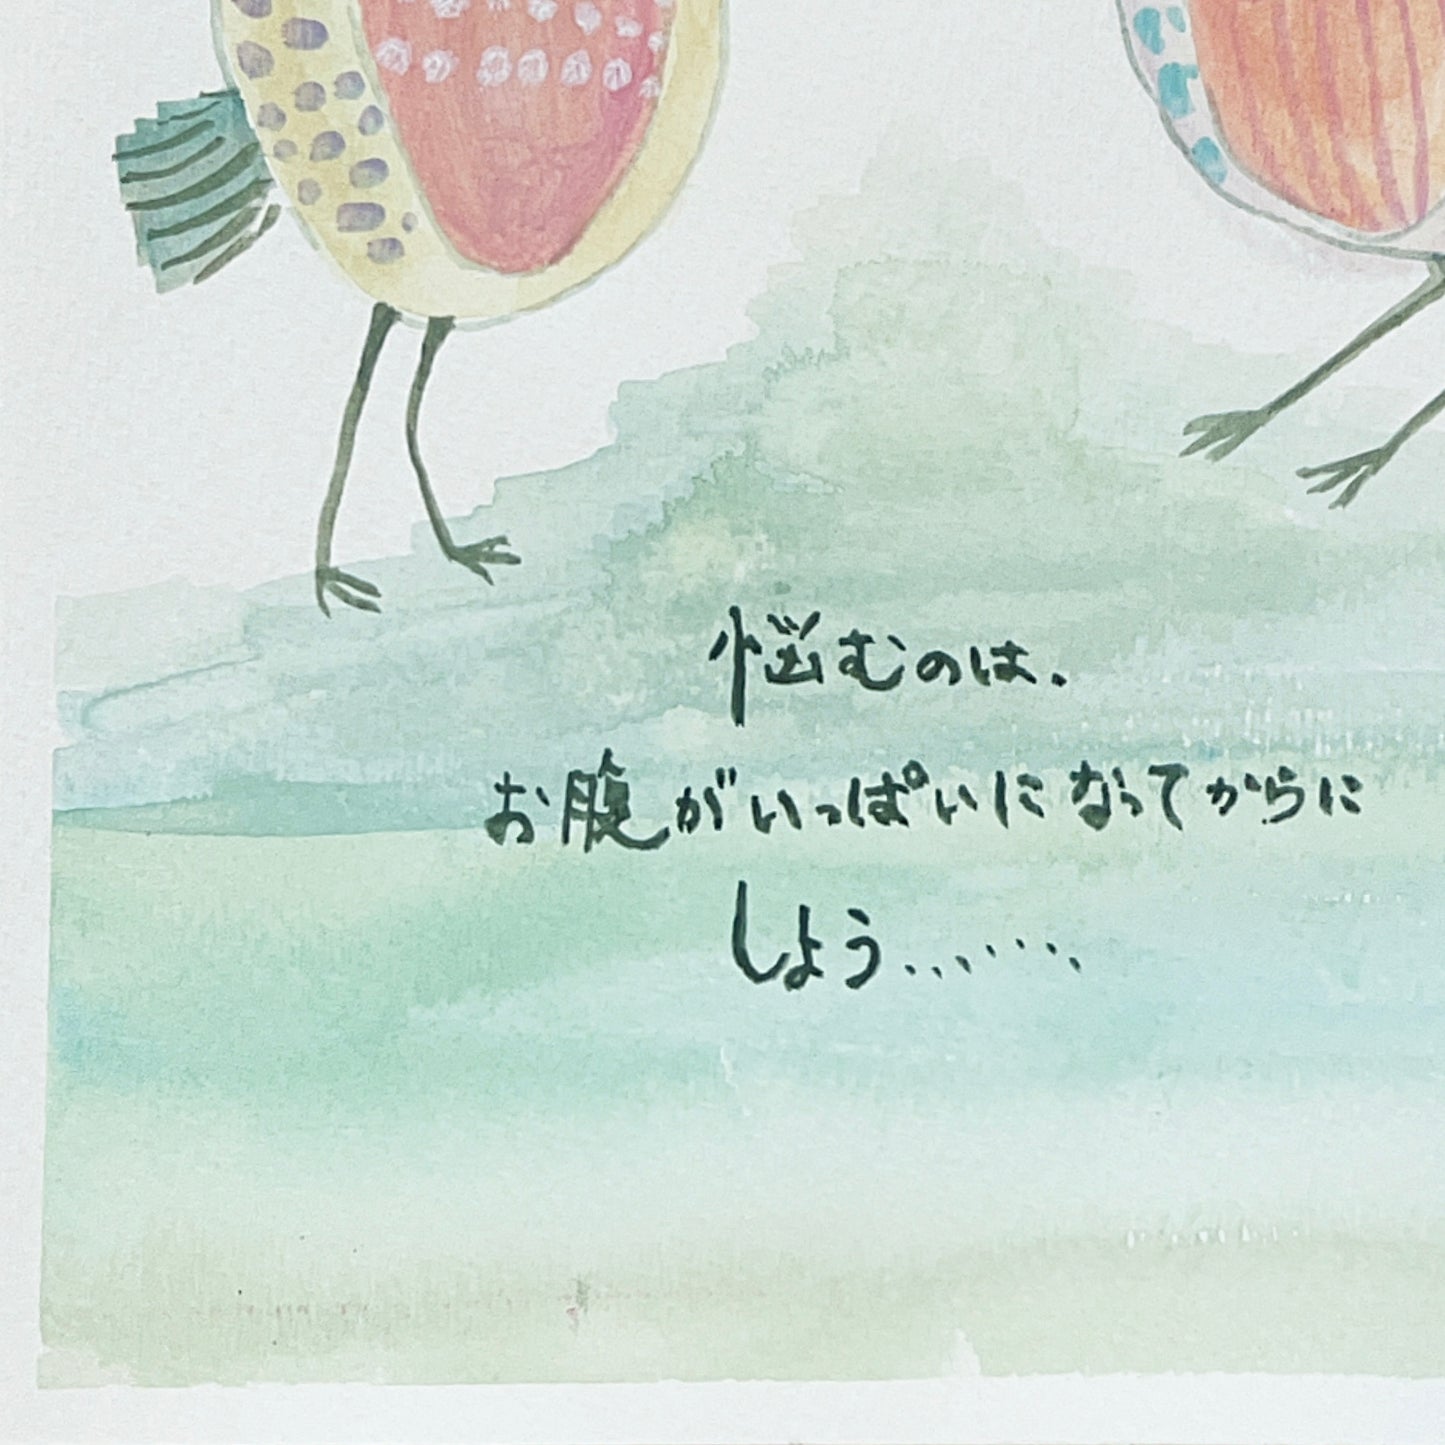 悩むのは、
お腹がいっぱいになってからに
しよう……